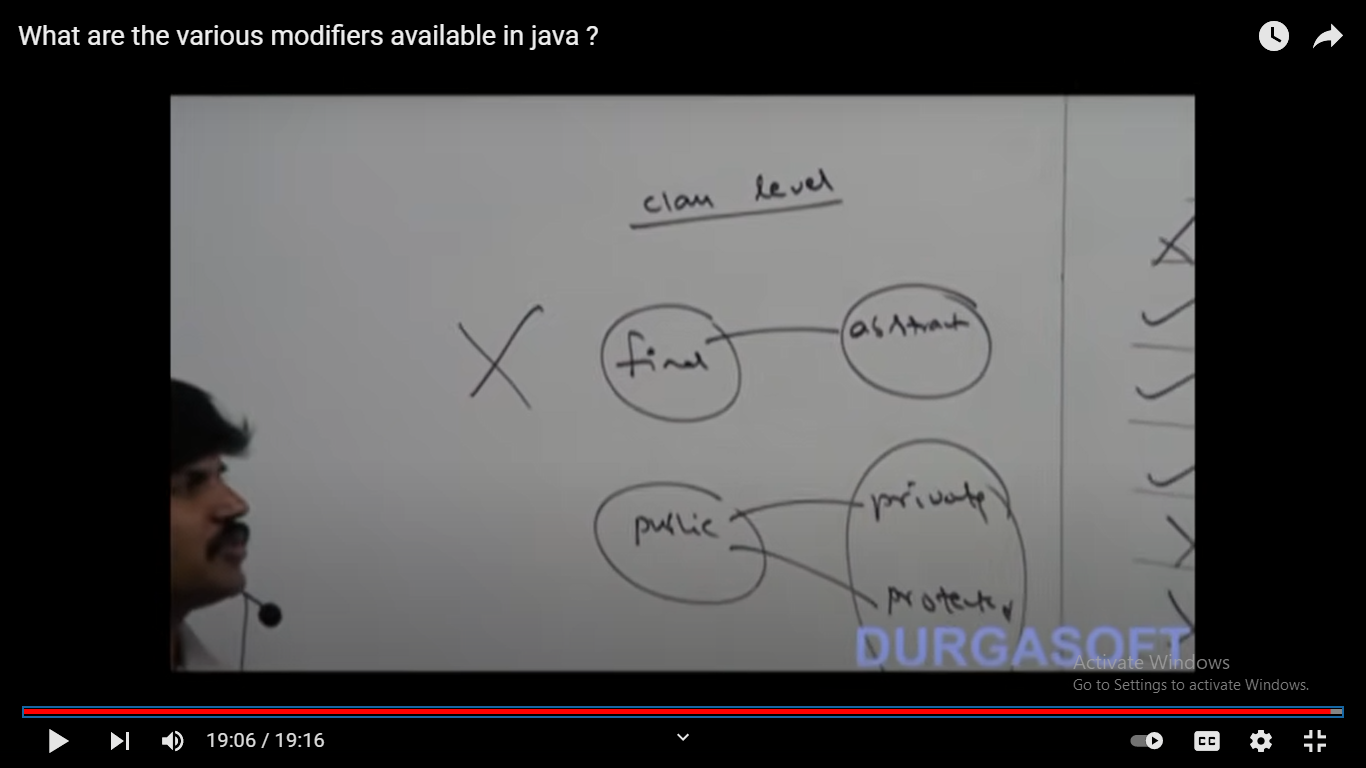 What are the various modifiers available in java ?
class level
final abstract
public private
protected
DURGASOFT
Activate Windows
Go to Settings to activate Windows.
19:06 / 19:16
CC